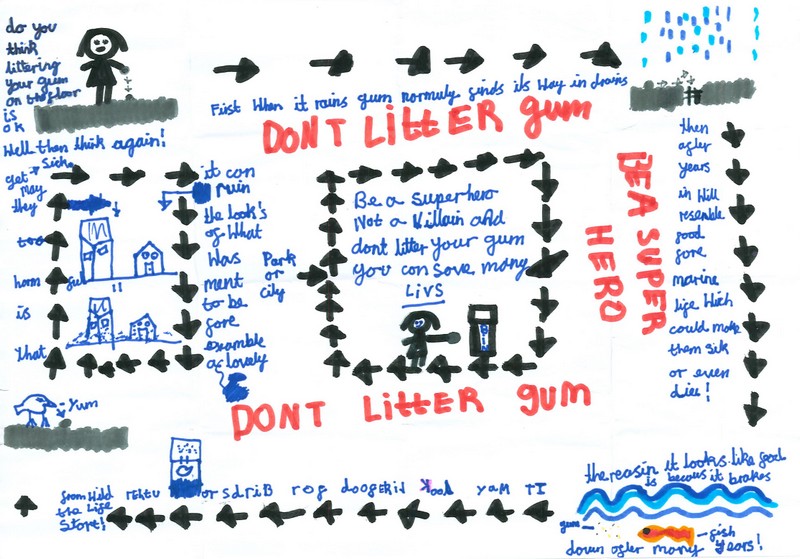 do you
think
littering
your gum
on the floor
is
ok
Well then think again!
Fist When it rains gum normuly finds its way in drains
DONT LittER gum
then
after
years
it Will
resemble
food
fore
marine
life Wich
could make
them sik
or even
die!
BE A SUPER
HERO
the reasin it looks like food
is becous it brakes
gum
fish
down after many years!
TI yaM kool rof sdriB
from Wild
the Life
Start!
Yum
that
is
harm
they
may
get
Sick
it can
ruin
the look's
of What
Was
ment
to be
fore
example
a lovely
Park
or
city
Be a superhero
Not a Villain and
dont litter your gum
you can save many
Livs
BIN
DONT LittER gum